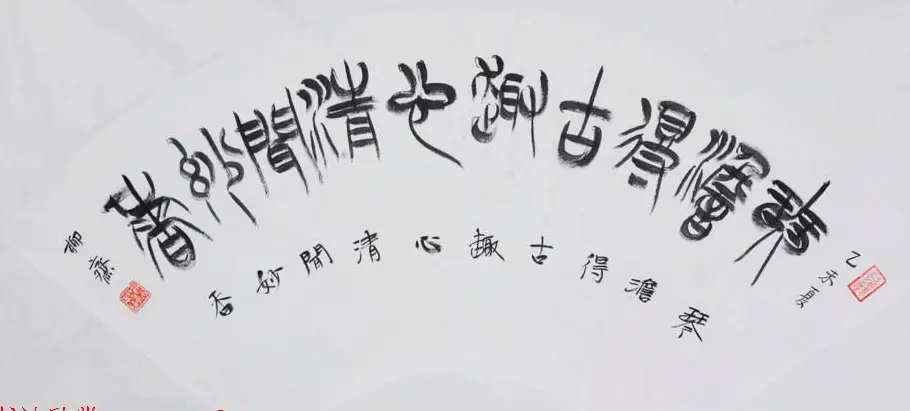 琴澹得古趣心清聞妙香
琴澹得古趣心清聞妙香
乙未夏
柳齋